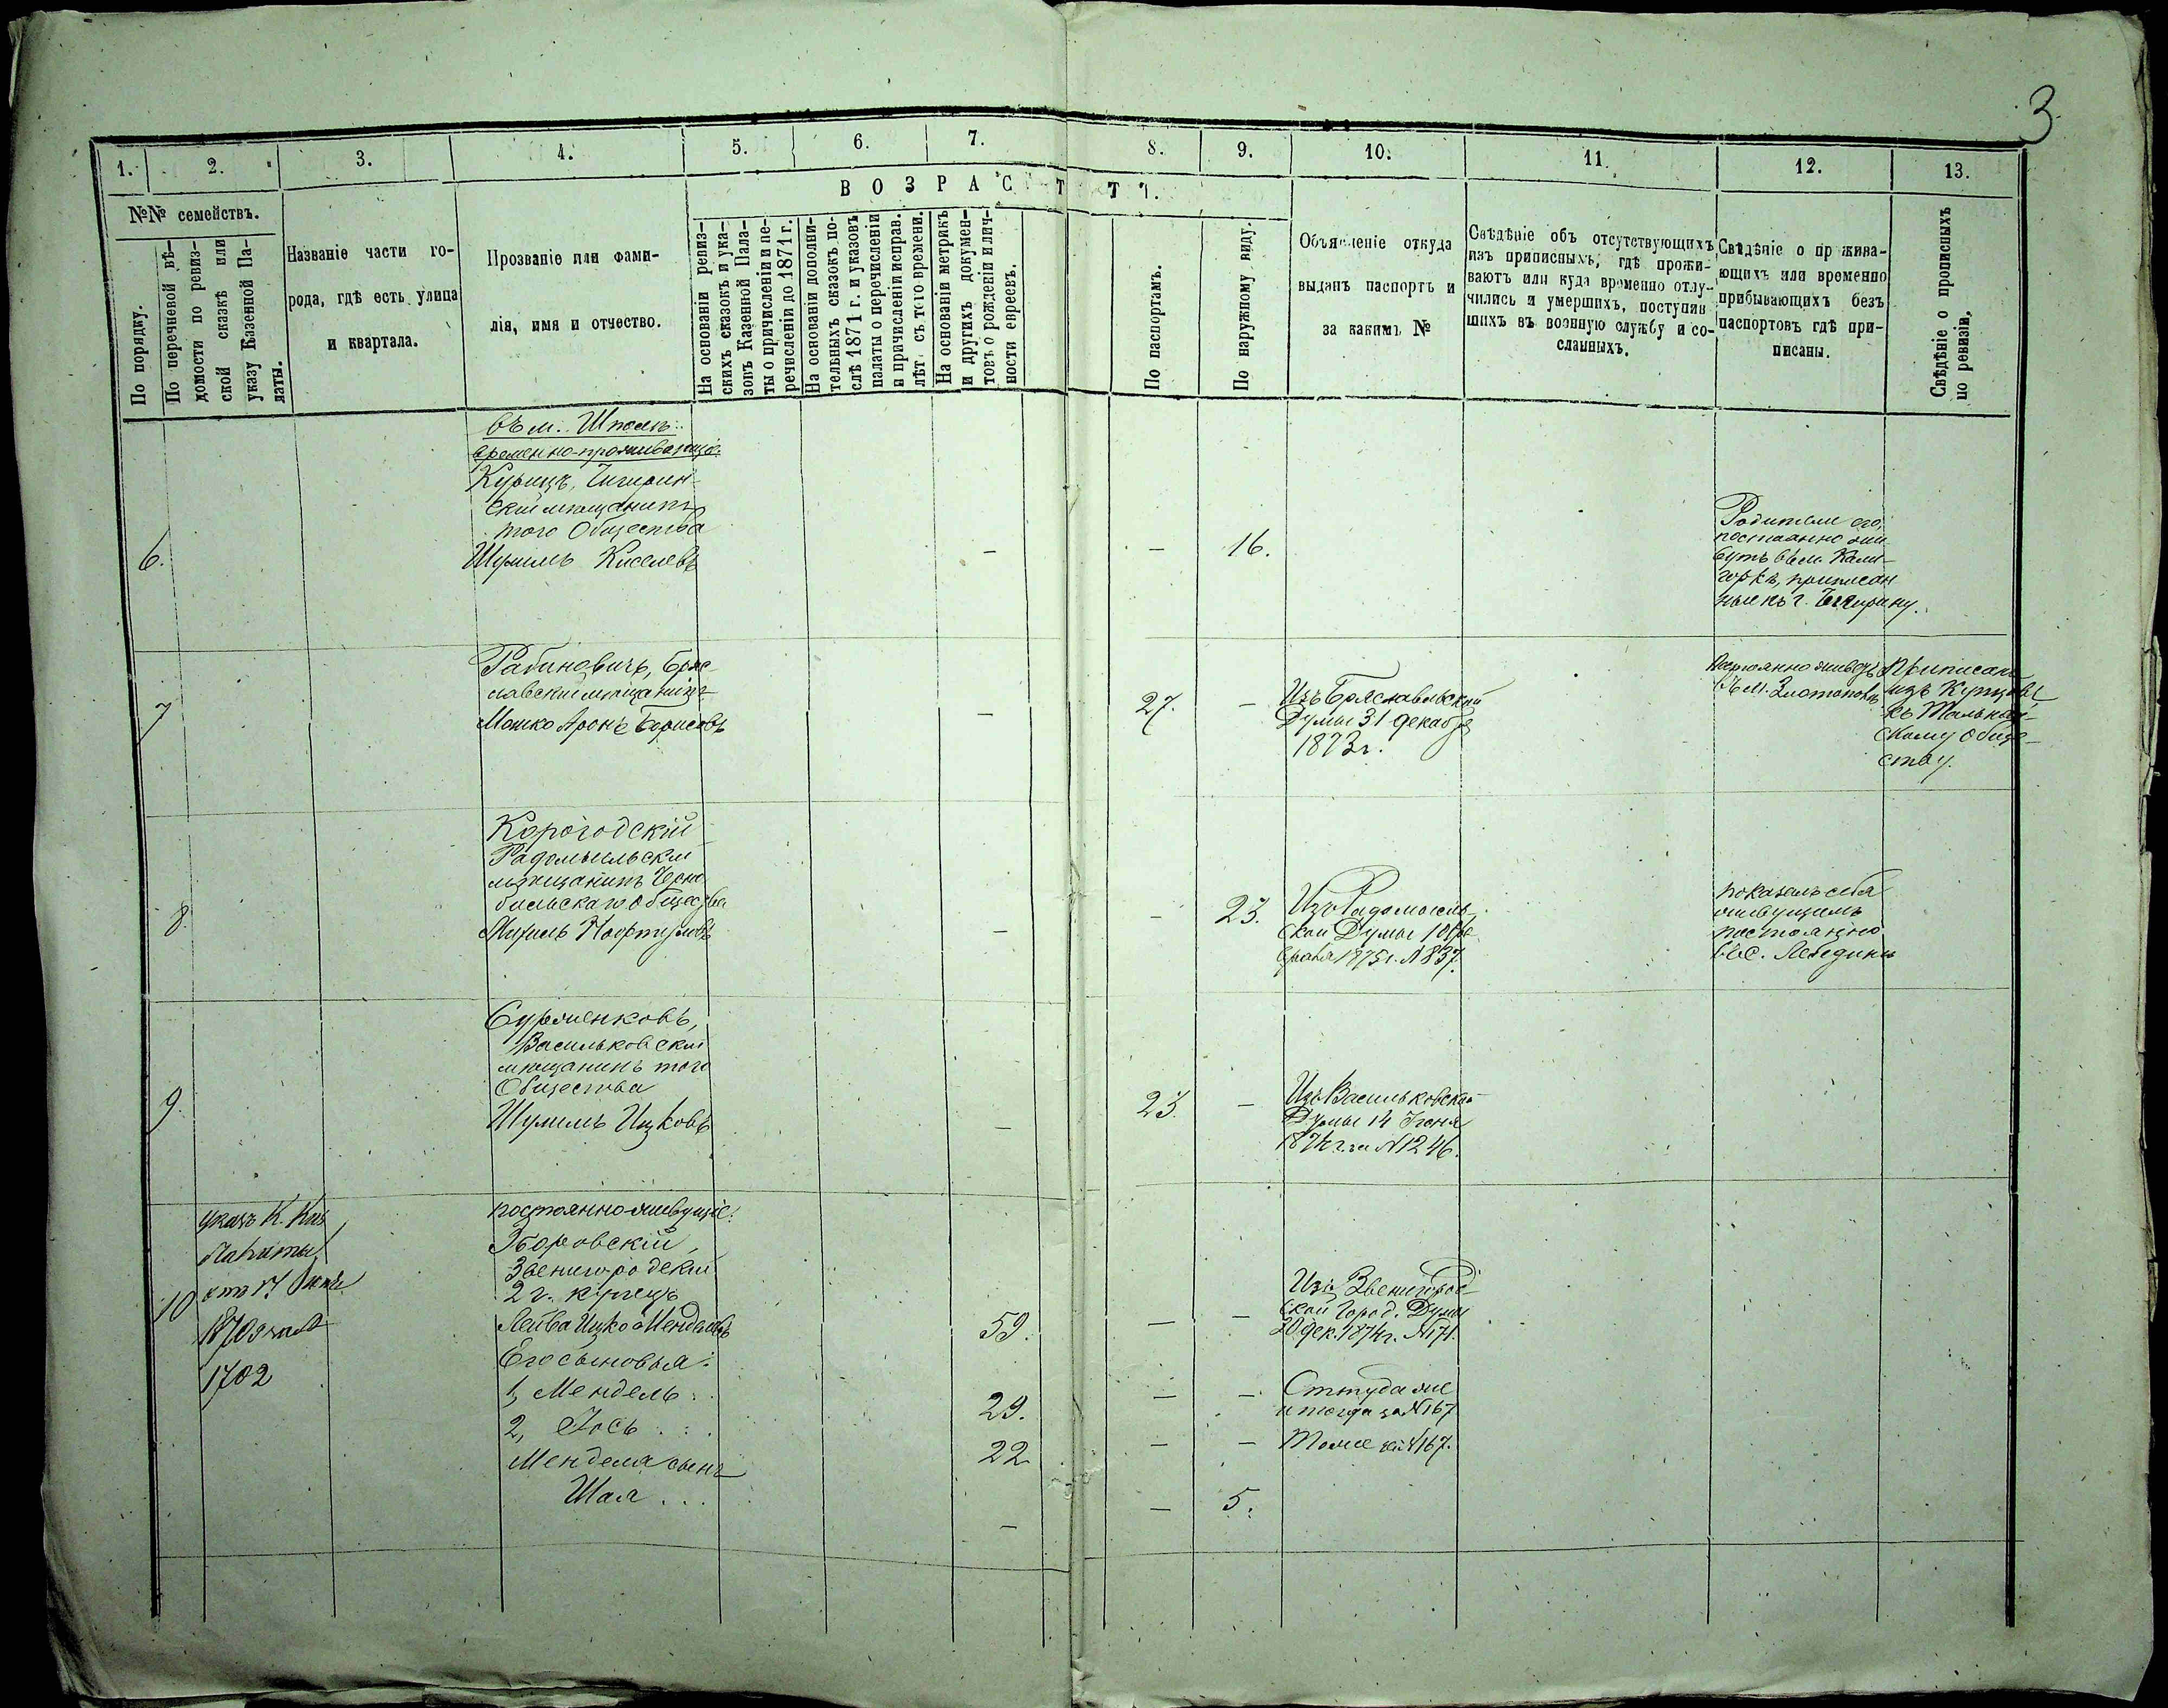 3
1. 2. 3. 4. 5. 6. 7. 8. 9. 10. 11. 12. 13.
№№ семействъ.
По порядку.
По перечневой вѣ-
домости по ревиз-
ской сказкѣ или
указу Казенной Па-
латы.
Названіе части го-
рода, гдѣ есть улица
и квартала.
Прозваніе или фами-
лія, имя и отчество.
ВОЗРАСТЪ.
На основаніи ревиз-
скихъ сказокъ и ука-
зовъ Казенной Пала-
ты о причисленіи и пе-
речисленіи до 1871 г.
На основаніи дополни-
тельныхъ сказокъ по-
слѣ 1871 г. и указовъ
палаты о перечисленіи
и причисленіи исправ.
лѣт съ того времени.
На основаніи метрикъ
и другихъ докумен-
товъ о рожденіи и лич-
ности евреевъ.
По паспортамъ.
По наружному виду.
Объясненіе откуда
выданъ паспортъ и
за какимъ №
Свѣдѣніе объ отсутствующихъ
изъ приписныхъ, гдѣ прожи-
ваютъ или куда временно отлу-
чились и умершихъ, поступив-
шихъ въ военную службу и со-
сланныхъ.
Свѣдѣніе о прожива-
ющихъ или временно
прибывающихъ безъ
паспортовъ гдѣ при-
писаны.
Свѣдѣніе о прописныхъ
по ревизіи.
въ м. Шполѣ
временно-проживающіе:
Курицъ, Чигирин-
скій мѣщанинъ
того Общества
6. Шумиль Киселевъ — — 16.
Родители его,
постоянно жи-
вутъ въ м. Кали-
горкѣ, приписан
ные къ г. Чигирину.
Рабиновичъ, Брас-
лавскій мѣщанинъ
7 Мошко Аронъ Борисовъ — 27. —
Изъ Браславльской
Думы 31 декабря
1873 г.
Постоянно живетъ
въ м. Златополѣ
Приписанъ
изъ Купцовъ
къ Тальнов-
скому обще-
ству.
Корогодскій
Радомысльскій
мѣщанинъ Черно
быльскаго общества
8. Мушль Нафтуловъ — — 23.
Изъ Радомысль-
ской Думы 10 Фе
враля 1875 г. № 837.
показалъ себя
живущимъ
постоянно
въ с. Лебединѣ
Сурженковъ,
Васильковскій
мѣщанинъ того
Общества
9. Шумиль Ицковъ — 23. —
Изъ Васильковской
Думы 14 Іюня
1874 г. за № 1246.
указъ К. Каз
Палаты
отъ 17
10
1870 за №
1702
постоянно-живущіе:
Зборовскій,
Звенигородскій
2 г. купецъ
Лейба Ицко Менделевъ 59. — —
Изъ Звенигород-
ской Город. Думы
20 дек. 1874 г. № 171.
Его сыновья:
1, Мендель 29. — —
Оттуда же
и тогда за № 167
2, Іось 22 — — Тоже за № 167.
Менделя сынъ
Шая — — 5.